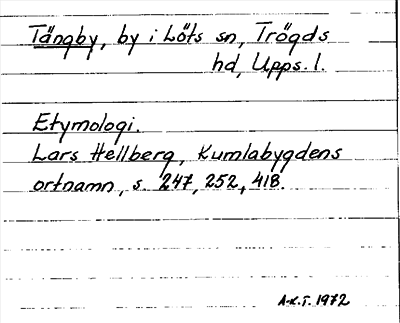 Tängby, by i Löts sn, Trögds
hd, Upps. l.
Etymologi.
Lars Hellberg, Kumlabygdens
ortnamn, s. 247, 252, 418.
A-K.T. 1972